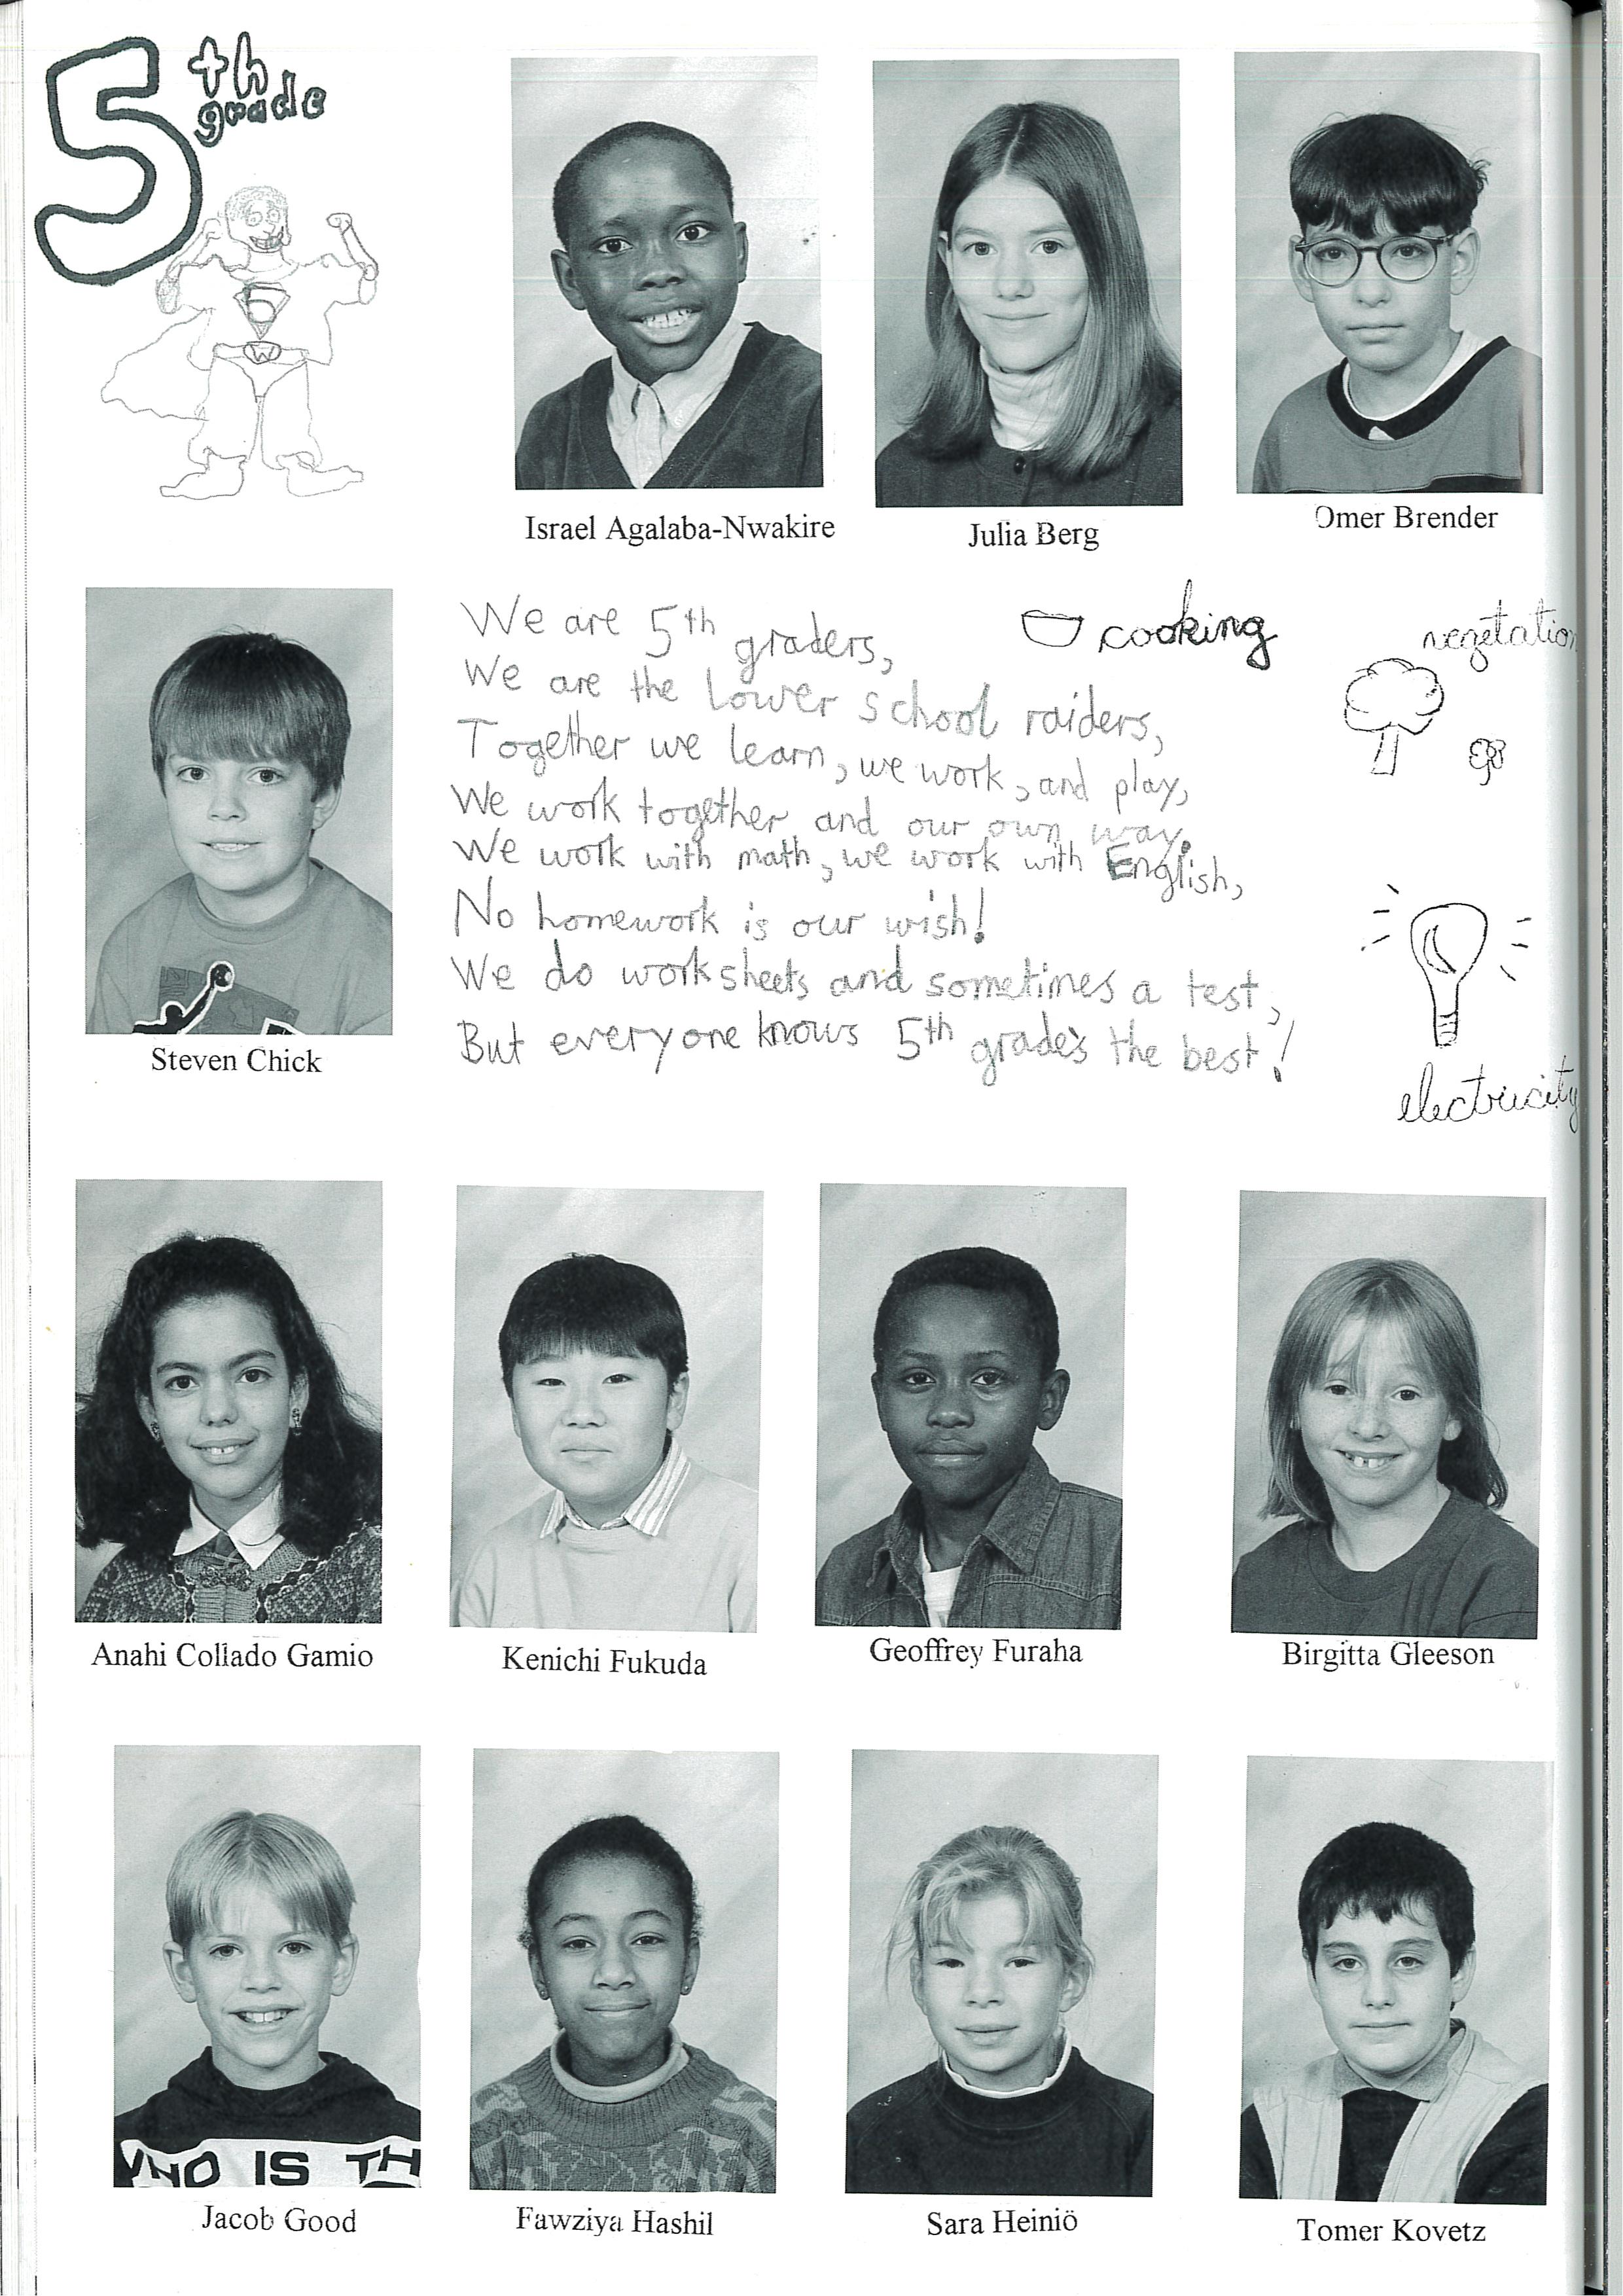 5th
grade
5
W
Israel Agalaba-Nwakire
Julia Berg
Omer Brender
We are 5th graders,
We are the lower school raiders,
Together we learn, we work, and play,
We work together and our own way.
We work with math, we work with English,
No homework is our wish!
We do worksheets and sometimes a test,
But everyone knows 5th grade's the best!
cooking
vegetation
electricity
Steven Chick
Anahi Collado Gamio
Kenichi Fukuda
Geoffrey Furaha
Birgitta Gleeson
WHO IS TH
Jacob Good
Fawziya Hashil
Sara Heiniö
Tomer Kovetz